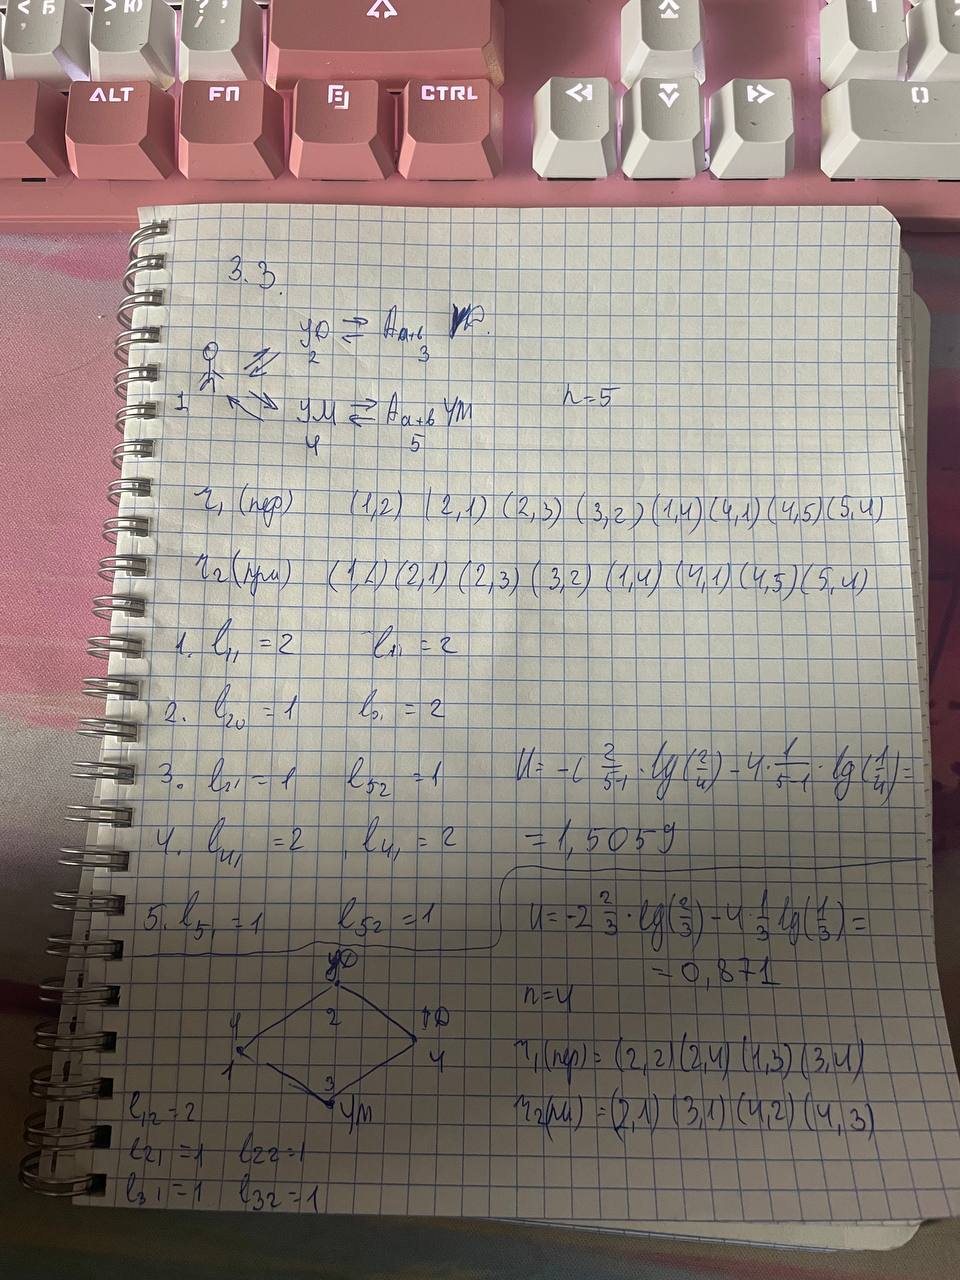 < Б > Ю ? ,
ALT FN CTRL
3.3.
УФ ⇄ Аa+b
2 3
1 УМ ⇄ Аa+b УМ n=5
4 5
r₁ (пер) (1,2) (2,1) (2,3) (3,2) (1,4) (4,1) (4,5) (5,4)
r₂ (при) (1,2) (2,1) (2,3) (3,2) (1,4) (4,1) (4,5) (5,4)
1. l₁₁ = 2
2. = 1 = 2
3. = 1 l₅₂ = 1
4. l₄₁ = 2 l₄₁ = 2
5. l₅₁ = 1 l₅₂ = 1
2/5-1 · lg(2/4) - 4 · 1/5-1 · lg(1/4) =
= 1,5059
И = -2 2/3 · lg(2/3) - 4 · 1/3 lg(1/3) =
= 0,871
n=4
УФ
2
1 4
3
УМ
r₁ (пер) = (2,2) (2,4) (1,3) (3,4)
r₂ (при) = (2,1) (3,1) (4,2) (4,3)
l₁₂ = 2
l₂₁ = 1 l₂₂ = 1
l₃₁ = 1 l₃₂ = 1